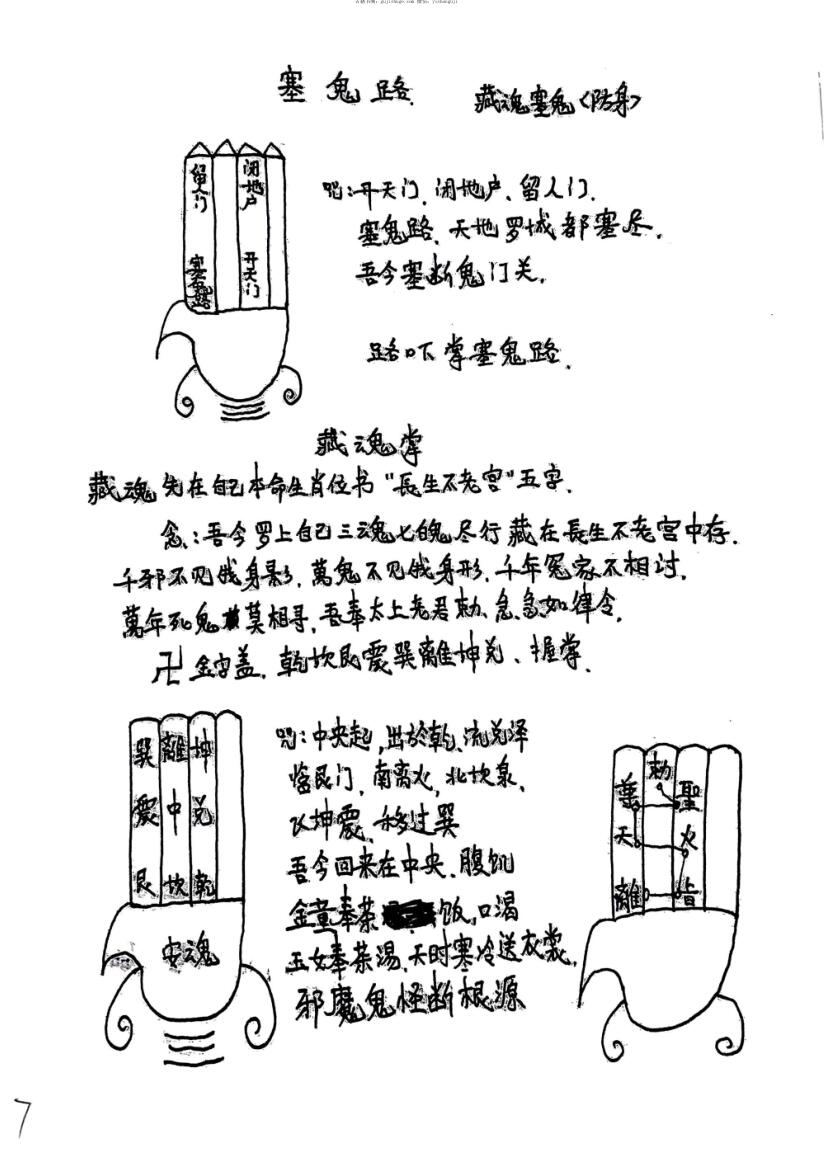 塞鬼路 藏魂塞鬼<防身>
留人门 闭地户
塞鬼路 开天门
咒:开天门、闭地户、留人门、
塞鬼路、天地罗城都塞尽、
吾今塞断鬼门关、
路口下掌塞鬼路、
藏魂掌
藏魂 先在自己本命生肖位书"長生不老宫"五字、
念:吾今罗上自己三魂七魄尽行藏在長生不老宫中存、
千邪不见我身影、萬鬼不见我身形、千年冤家不相讨、
萬年死鬼莫相寻、吾奉太上老君勅、急急如律令、
卍 金字盖、乾坎艮震巽離坤兑、握掌、
巽離坤
震中兑
艮坎乾
安魂
咒:中央起,出於乾、流兑泽
艮门、南离火、北坎泉、
坤震、移过巽
吾今回来在中央、腹饥
金童奉茶饭、口渴
玉女奉茶湯、天时寒冷送衣裳、
邪魔鬼怪断根源
勅
聖
天 火
離
7